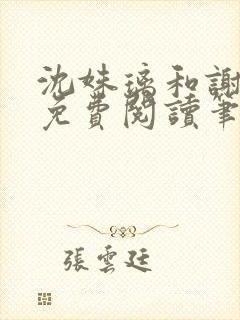 沈姝璃和謝
免費閱讀筆
張雲廷